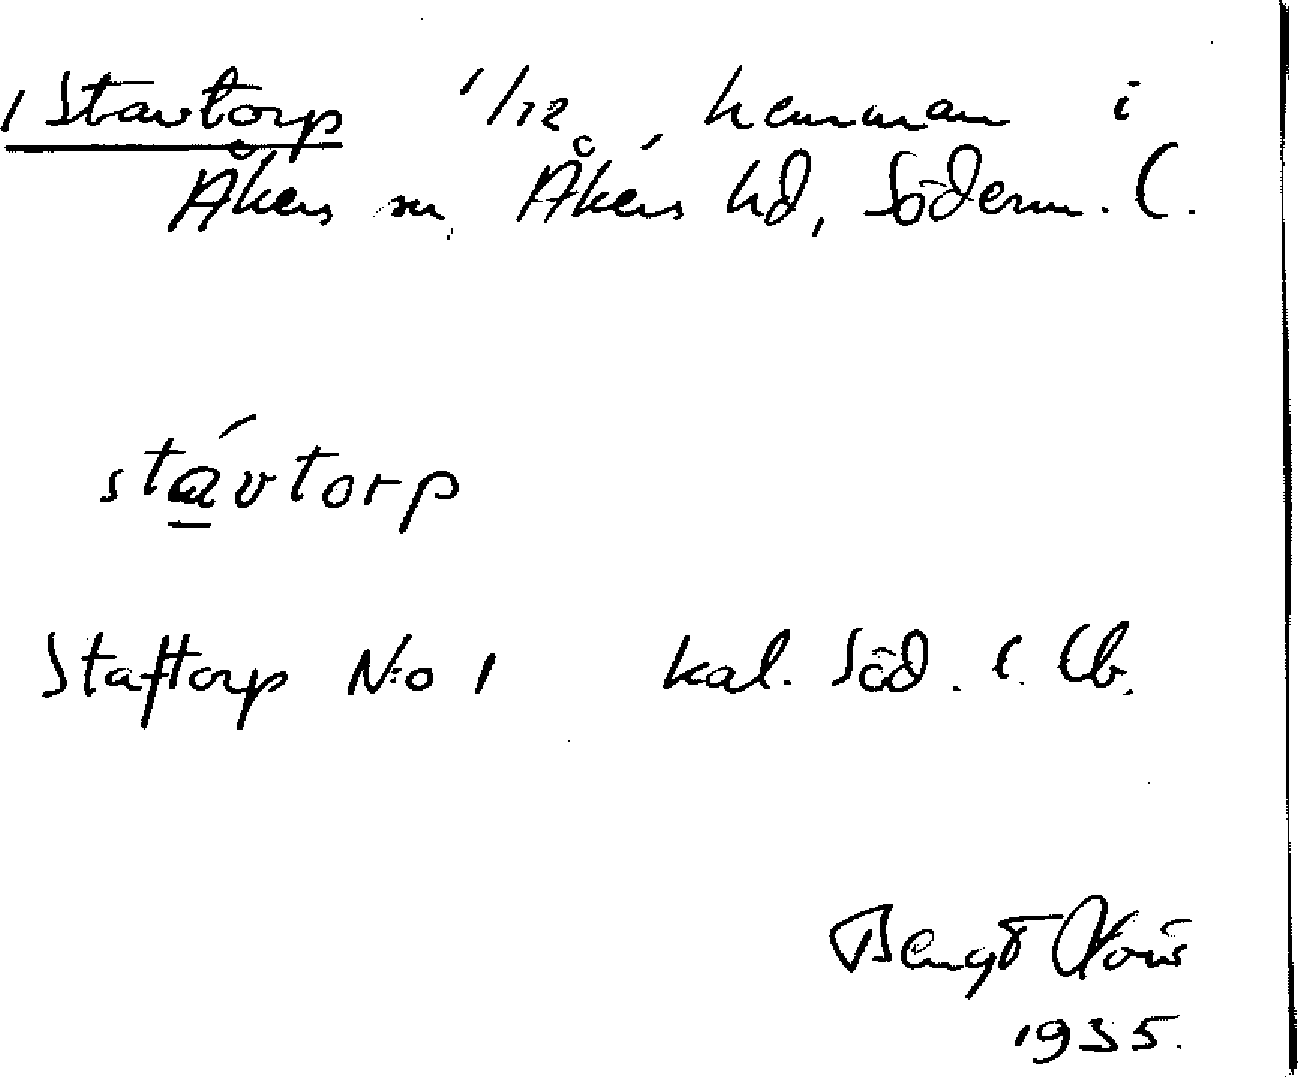 1 Stavtorp 1/12 hemman i
Åkers sn, Åkers hd, Söderm. l.
stávtorp
Staftorp N:o 1 kal. Söd. l.
Bengt
1935.